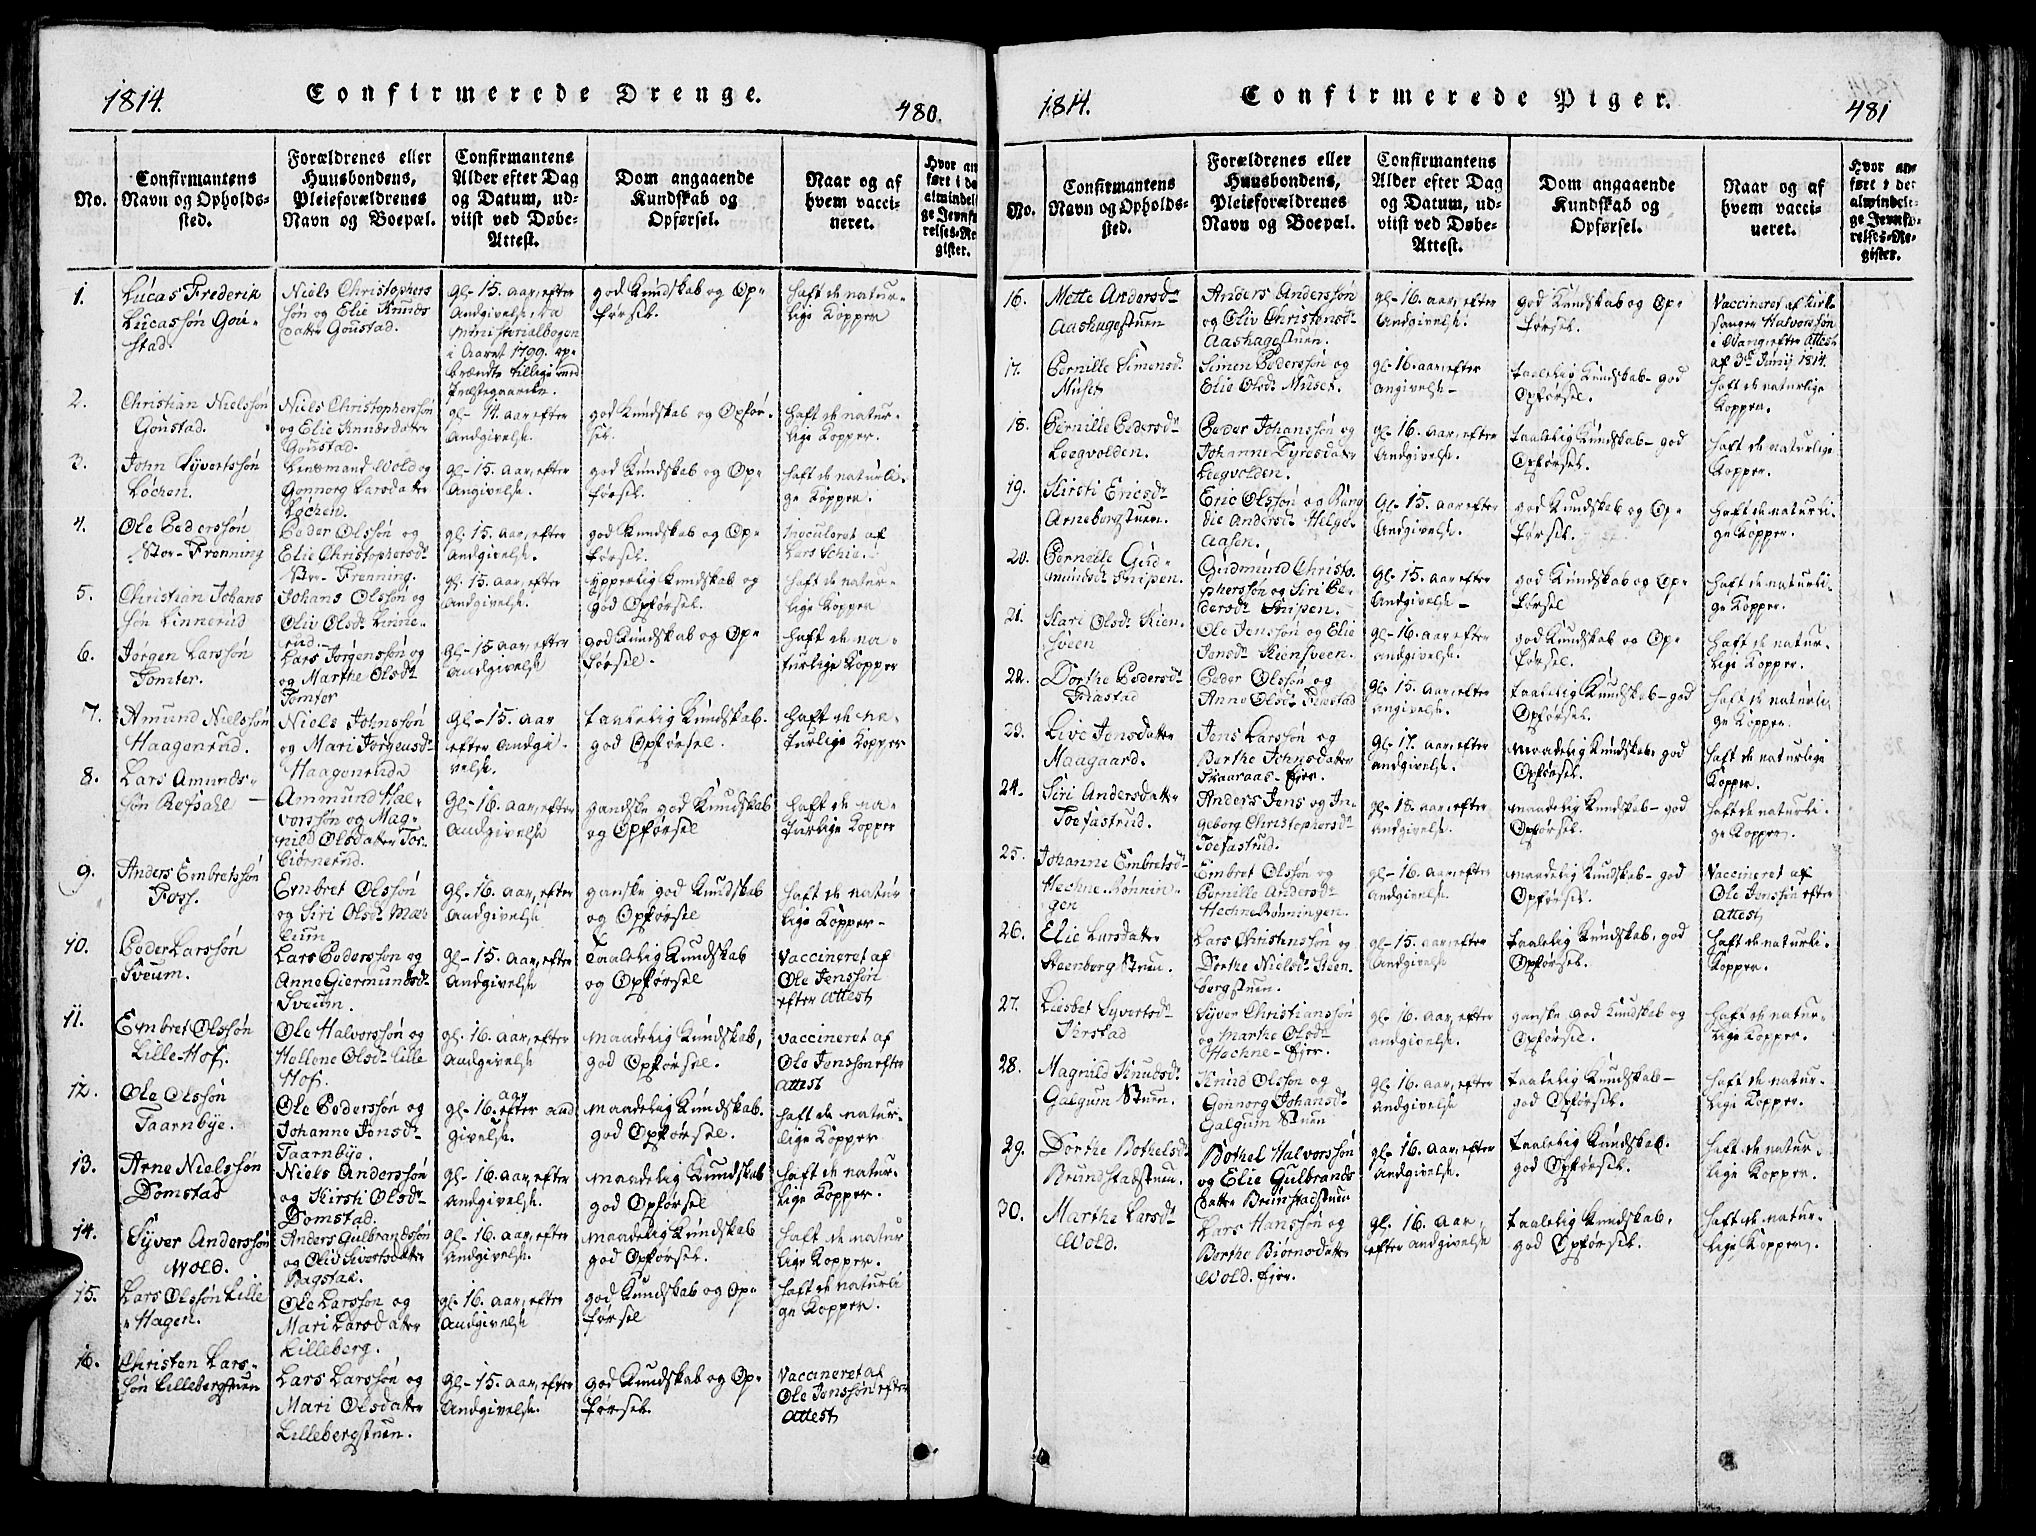 1814.
Confirmerede Drenge.
480.
No.
Confirmantens
Navn og Opholds-
sted.
Forældrenes eller
Huusbondens,
Pleieforældrenes
Navn og Boepæl.
Confirmantens
Alder efter Dag
og Datum, ud-
viist ved Døbe-
Attest.
Dom angaaende
Kundskab og
Opførsel.
Naar og af
hvem vacci-
neret.
Hvor an
ført i de
almindel
ge Jevnfø
relses-Re
gister.
1.
Lucas Frederik
Lucassøn Gou-
stad.
Niels Christophers
søn og Elie Knuds
datter Goustad.
gl. 15. aar, efter
Andgivelse, da
Ministerialbogen
i Aaret 1799. op-
brændte tillige med
Præstegaarden.
god Kundskab og Op-
førsel.
haft de natur-
lige Kopper
2.
Christian Nielssøn
Goustad.
Niels Christopherssøn
og Elie Knudsdatter
Goustad.
gl. 14. aar, efter
Andgivelse.
god Kundskab og Opfør-
sel.
haft de natur-
lige Kopper.
3.
John Syvertssøn
Løchen.
Lensmand Wold og
Gonnorg Larsdatter
Løchen.
gl. 15. aar, efter
Angivelse.
god Kundskab og Op-
førsel.
haft de naturli-
ge Kopper.
4.
Ole Pederssøn
Stor-Frenning
Peder Olssøn og
Elie Christophersdr
Stor-Frenning.
gl. 15. aar, efter
Andgivelse.
god Kundskab og Op-
førsel.
inoculeret af
Lars Schie.
5.
Christian Johans
søn Linnerud
Johans Olssøn og
Oliv Olsdr Linne-
rud.
gl. 15. aar, efter
Andgivelse.
ypperlig Kundskab og
god Opførsel.
haft de natur-
lige Kopper
6.
Jørgen Larssøn
Tomter.
Lars Jørgenssøn og
og Marthe Olsdr
Tomter
gl. 15 aar, efter
Andgivelse
god Kundskab og Op-
førsel.
haft de na-
turlige Kopper
7.
Amund Nielssøn
Haagenrud.
Niels Johnssøn
og Mari Jørgensdr
Haagenrude
Gl. 15. aar
efter Andgi-
velse.
taalelig Kundskab.
god Opførsel.
haft de na-
turlige Kopper
8.
Lars Amunds-
søn Refsahl
Ammund Hal-
vorssøn og Mag-
nild Olsdatter Tor-
biørnrud.
Gl. 16. aar, efter
Andgivelse
gandske god Kundskab
og Opførsel
haft de na-
turlige Kopper
9.
Anders Embretssøn
Foss.
Embret Olssøn
og Siri Olsdr Mæh-
lum.
gl. 16. aar, efter
Andgivelse.
ganske god Kundskab
og Opførsel
haft de natur
lige Kopper-
10.
Peder Larssøn
Sveum.
Lars Pederssøn og
Anne Giermundsdr
Sveum.
gl. 15. aar, efter
Andgivelse
Taalelig Kundskab
og Opførsel
Vaccineret af
Ole Jenssøn
efter Attest
11.
Embret Olssøn
Lille-Hof.
Ole Halvorssøn og
Hellene Olsdr Lille
Hof.
gl. 16. aar, efter
Andgivelse
maadelig Kundskab,
god Opførsel.
vaccineret af
Ole Jenssøn efter
Attest
12.
Ole Olssøn
Taarnbye.
Ole Pederssøn og
Johanne Jonsdr
Taarnbye.
gl. 16. aar efter and
givelse.
maadelig Kundskab.
god Opførsel.
haft de natur-
lige Kopper
13.
Arne Nielssøn
Domstad
Niels Anderssøn
og Kirsti Olsdr
Domstad.
gl. 16. aar, efter
Andgivelse.
maadelig Kundskab
god Opførsel
haft de natur-
lige Kopper.
14.
Syver Anderssøn
Wold.
Anders Gulbrandssøn
og Oliv Sivertsdatter
Bagstad.
Gl. 16. aar, efter
Andgivelse.
maadelig Kundskab
god Opførsel.
haft de natur
lige Kopper.
15.
Lars Olssøn Lille
Hagen.
Ole Larssøn og
Mari Larsdatter
Lilleberg.
gl. 16. aar, efter
Andgivelse
god Kundskab og Op-
førsel
haft de naturli
ge Kopper.
16.
Christen Lars-
søn Lillebergstuen
Lars Larssøn og
Mari Olsdatter
Lillebergstuen.
Gl. 15. aar, efter
Andgivelse.
god Kundskab og Op-
førsel.
Vaccineret af
Ole Jenssøn efter
Attest
1814.
Confirmerede Piger.
481
No.
Confirmantens
Navn og Opholds-
sted.
Forældrenes eller
Huusbondens,
Pleieforældrenes
Navn og Boepæl.
Confirmantens
Alder efter Dag
og Datum, ud-
viist ved Døbe-
Attest.
Dom angaaende
Kundskab og
Opførsel.
Naar og af
hvem vacci-
neret.
Hvor an-
ført i det
almindeli-
ge Jevnfø-
relses-Re-
gister.
16.
Mette Andersdr
Aashagestuen
Anders Anderssøn
og Eliv Christensdr
Aashagestuen.
gl. 16. aar, efter
Andgivelse.
god Kundskab og Op-
førsel.
Vaccineret af Kirke-
sanger Halvorssøn
i Vang efter Attest
af 3de Junij 1814.
17.
Pernille Simensdr
Muset
Simen Pederssøn og
Elie Olsdr Muset.
gl. 16. aar, efter
Angivelse-
taalelig Kundskab- god
Opførsel.
haft de naturlige
Kopper.
18.
Pernille Pedersdr
Leegvolden.
Peder Johanssøn og
Johanne Syvesdatter
Leegvolden.
gl. 16. aar, efter
Andgivelse.
taalelig Kundskab- god
Opførsel.
haft de naturlige
Kopper.
19.
Kirsti Ericsdr
Arneborgstuen.
Eric Olssøn og Rang
die Andersdr Helge-
aasen.
Gl. 15. aar, efter
Andgivelse.
god Kundskab og Op-
førsel.
haft de naturli-
ge Kopper.
20.
Pernille Gud-
mundsdr Snipen.
Gudmund Christo-
pherssøn og Siri Pe-
dersdr Snipen.
Gl. 15. aar, efter
Andgivelse-
god Kundskab og Op-
førsel
haft de naturli-
ge Kopper.
21.
Kari Olsdr Kien-
sveen
Ole Jenssøn og Elie
Jensdr Kiensveen.
Gl. 16. aar, efter
andgivelse.
god Kundskab og Op-
førsel.
haft de natur-
lige Kopper.
22.
Dorthe Pedersdr
Fiæstad
Peder Olssøn og
Anne Olsdr Fiæstad
Gl. 15. aar, efter
angivelse.
taalelig Kundskab- god
Opførsel.
haft de naturli-
ge Kopper.
23.
Live Jensdatter
Maagaard.
Jens Larssøn og
Berthe Johnsdatter
Skaaraas-Ejer.
Gl. 17. aar, efter
andgivelse.
maadelig Kundskab, god
Opførsel.
haft de naturlige
Kopper.
24.
Siri Andersdatter
Toefastrud.
Anders Jens og In-
geborg Christophersdr
Toefastrud.
gl. 18. aar, efter
Andgivelse.
maadelig Kundskab- god
Opførsel.
haft de naturli-
ge Kopper.
25.
Johanne Embretsdr
Hechne-Rønnin-
gen
Embret Olssøn og
Pernille Andersdr
HechneRønningen.
gl. 16. aar, efter
Andgivelse.
maadelig Kundskab- god
Opførsel.
Vaccineret af
Ole Jenssøn efter
Attest
26.
Elie Larsdatter
Steenborg Stuen.
Lars Christenssøn og
Dorthe Nielsdr Steen-
borgstuen.
gl. 15. aar, efter
Andgivelse
taalelig Kundskab, god
Opførsel.
haft de naturli-
Kopper.
27.
Liesbet Syvertsdr
Jørstad
Syver Christianssøn
og Marthe Olsdr
Hechne-Ejer.
gl. 16. aar, efter
andgivelse.
ganske god Kundskab og
Opførsel.
haft de natur-
lige Kopper.
28.
Magnild Knudsdr
Galgum Stuen.
Knud Olssøn og
Gonnorg Johansdr
Galgum Stuen
gl. 16. aar, efter
Andgivelse
taalelig Kundskab-
god Opførsel.
haft de natur-
lige Kopper.
29.
Dorthe Bothelsdr
Brundstadstuen.
Bothel Halvorssøn
og Elie Gulbrands
datter Brunstadstuen
gl. 16. aar, efter
Andgivelse.
taalelig Kundskab.
god Opførsel.
haft de natur
lige Kopper.
30.
Marthe Larsdr
Wold.
Lars Hanssøn og
Berthe Biørnsdatter
Wold. Ejer.
gl. 16. aar-
efter andgivelse
taalelig Kundskab,
god Opførsel.
haft de natur-
lige Kopper.